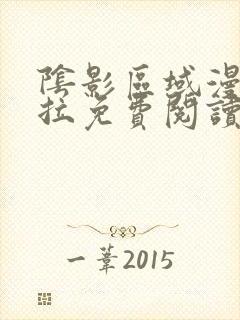 陰影區域漫
拉免費閱讀
一葦2015